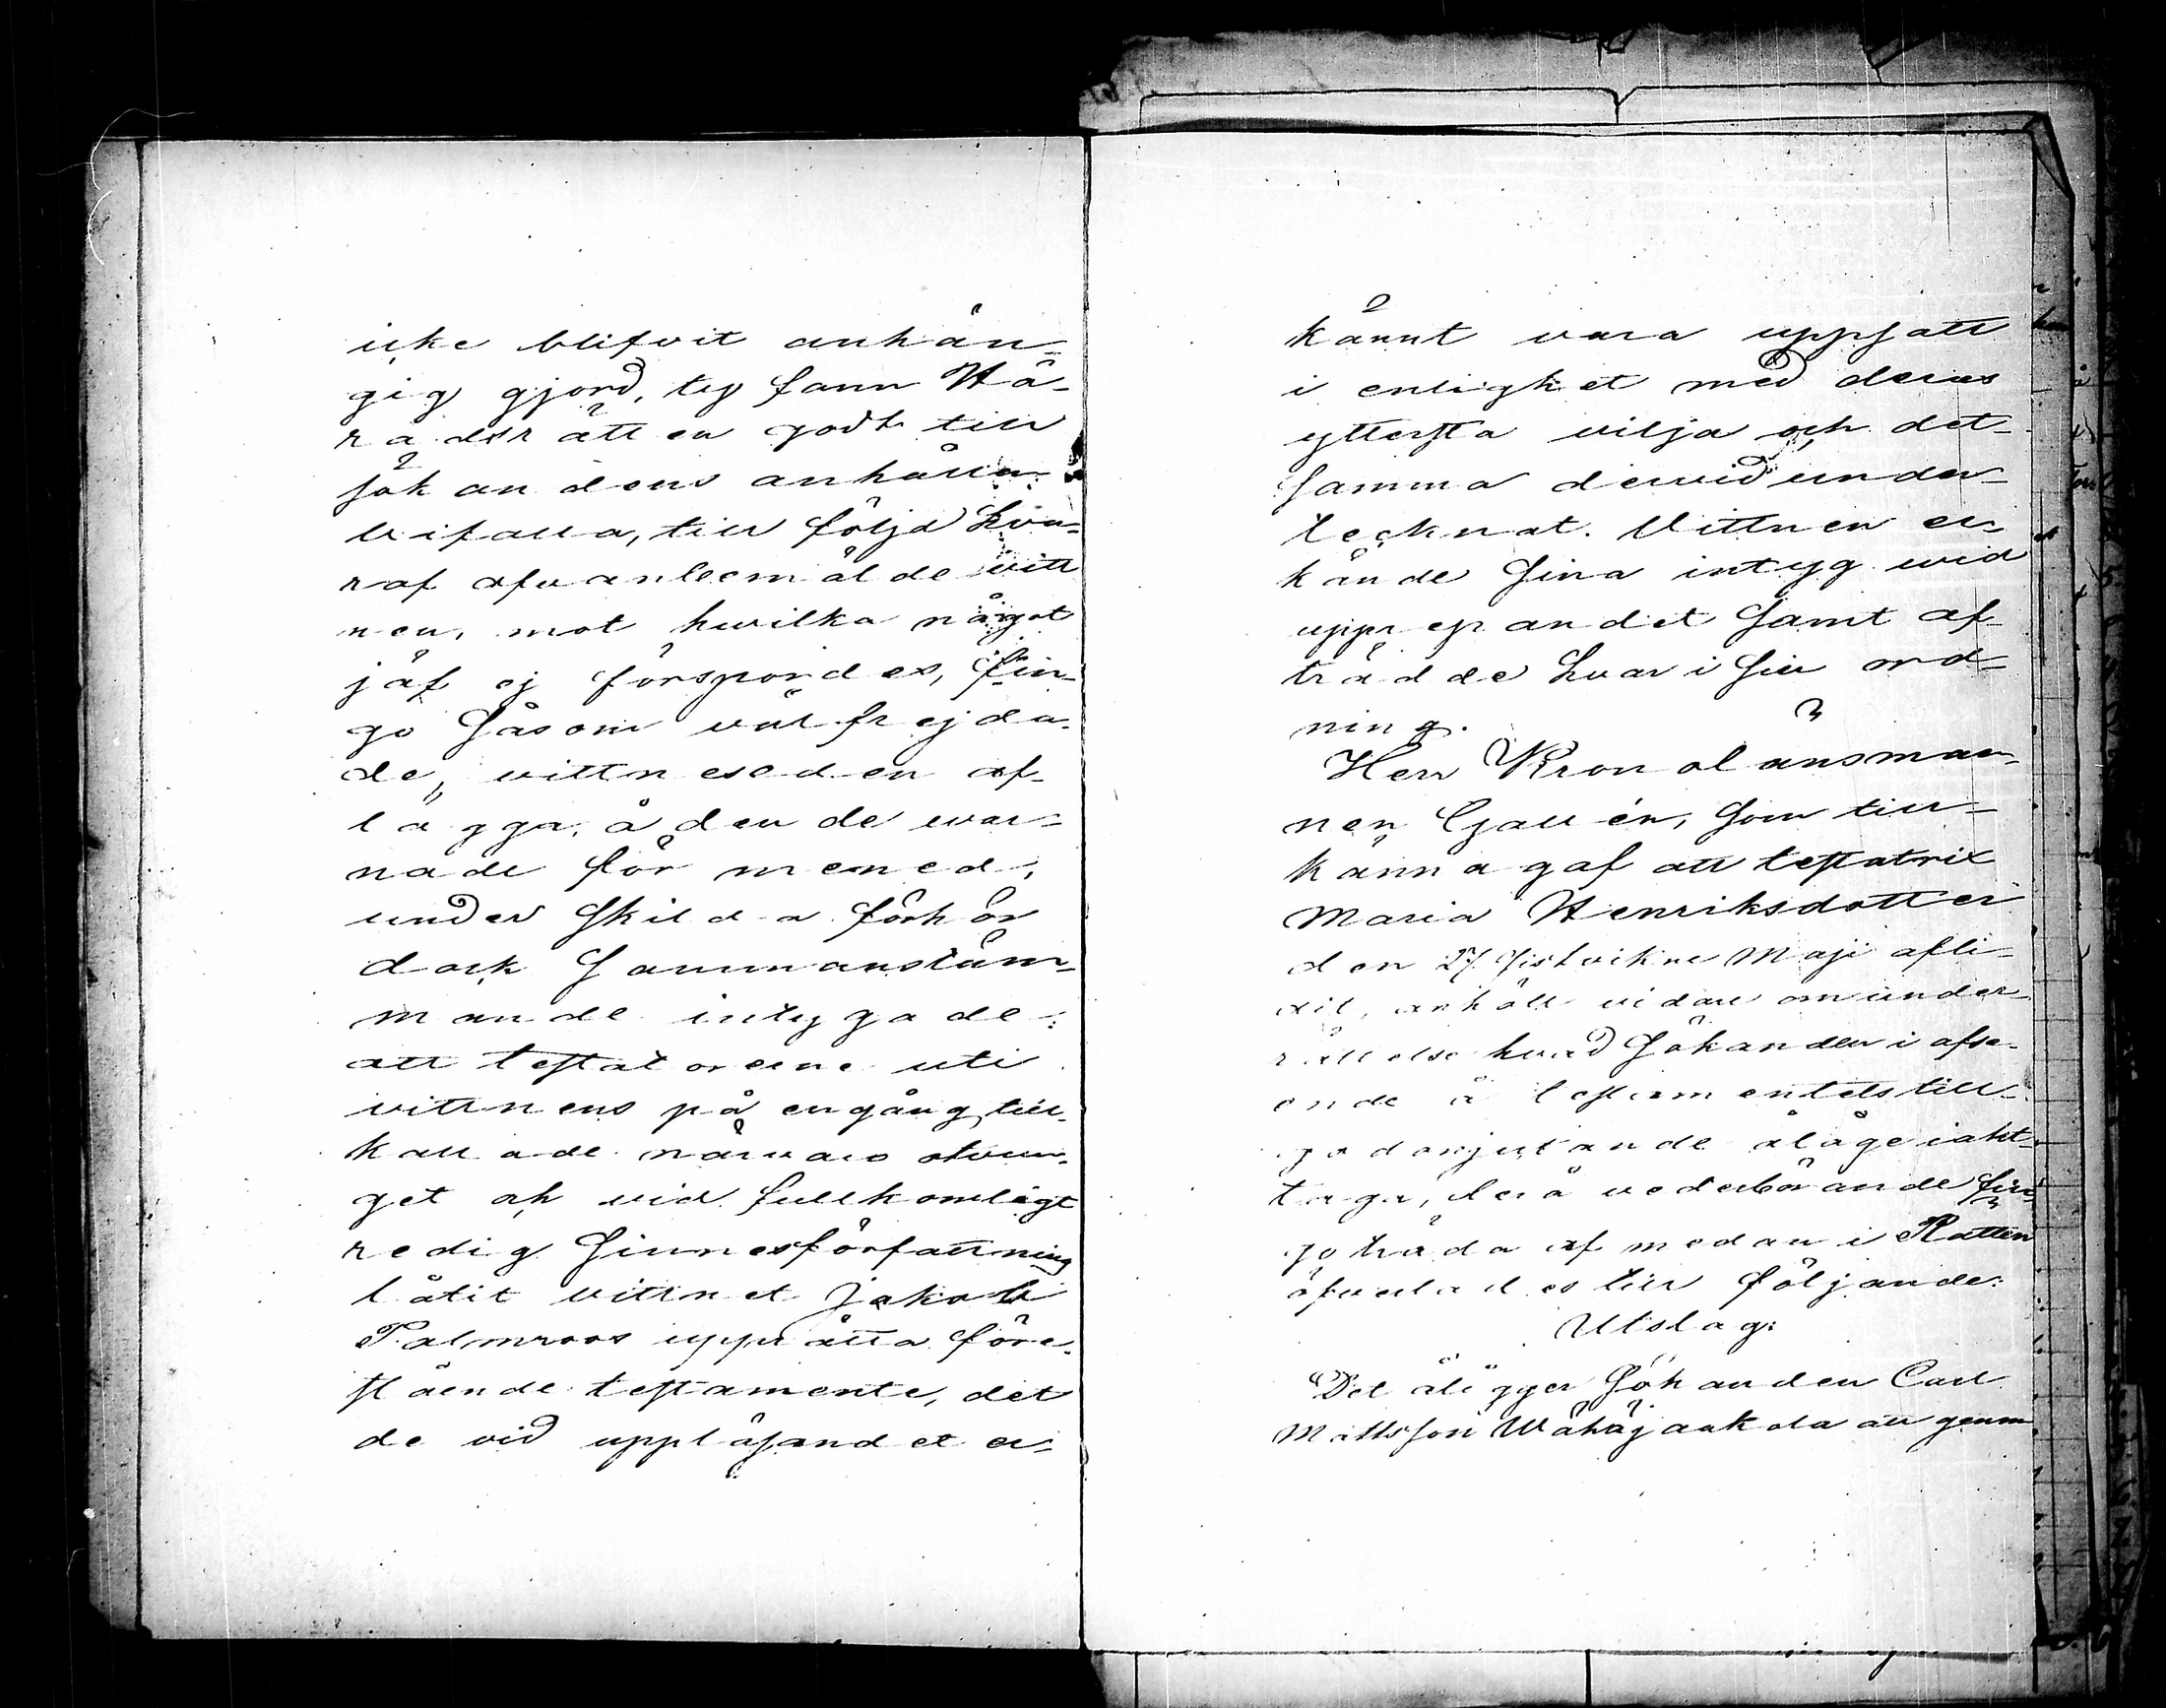 icke blifvit anhän-
gig gjord, ty fann Hä-
radsrätten godt till
sökandens anhållan
bifalla, till följd hva-
raf ofvanbemälde vitt
nen, mot hvilka något
jäf ej förspordes, fin-
go såsom välfrejda-
de, vittneseden af-
lägga, å den de war-
nade för mened,
under skilda förhör
dock sammanstäm-
mande intygade:
att testatorerne uti
vittnens på engång till-
kallade närvaro otvun-
get och vid fullkomligt
redig sinnesförfattning
låtit vittnet Jakob
Palmroos upprätta före-
stående testamente, det
de vid uppläsandet er-
kännt vara uppsatt
i enlighet med deras
yttersta vilja och det-
samma dervid under-
tecknat. Vittnen er-
kände sina intyg wid
upprepandet samt af-
trädde hvar i sin ord-
ning.
Herr Kronolänsman-
nen som till-
känna gaf att testatrix
Maria Henriksdotter
den 27 sistvikne Maji afli-
dit, anhöll vidare om under-
rättelse hvad sökanden i afse-
ende å testamentets till-
godonjutande ålåge iakt-
taga, derå vederbörande fin-
go träda af medan i Rätten
öfverlades till följande:
Utslag:
Det ålägger sökanden Carl
Mattsson Wähäjaakola att genom